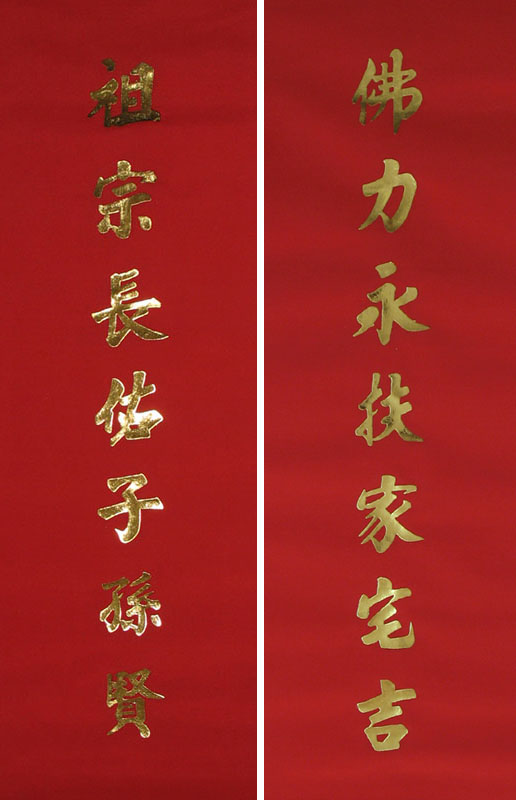 佛力永扶家宅吉
祖宗長佑子孫賢